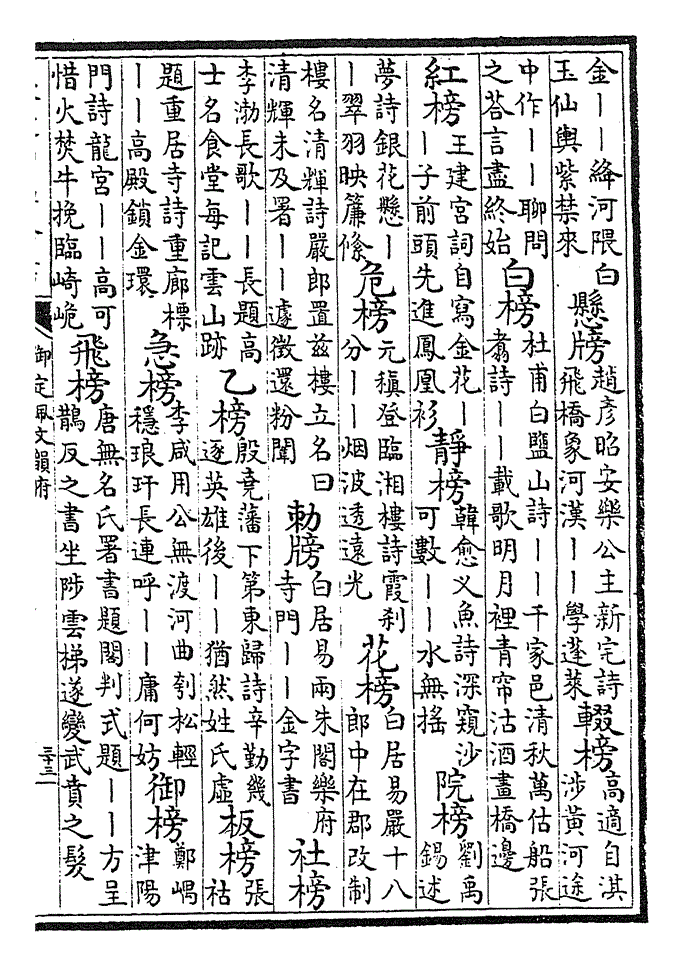 金——絳河隈白玉仙輿紫禁來懸牓趙彥昭安樂公主新宅詩飛橋象河漢——學蓬萊輟榜高適自淇涉黃河途
中作——聊問之荅言盡終始白榜杜甫白鹽山詩——千家邑清秋萬估船張翥詩——載歌明月裡青帘沽酒畫橋邊
紅榜王建宮詞自寫金花——子前頭先進鳳凰衫靜榜韓愈义魚詩深窺沙可數——水無搖院榜劉禹錫述
夢詩銀花懸——翠羽映簾條危榜元稹登臨湘樓詩霞刹分——烟波透遠光花榜白居易嚴十八郎中在郡改制
樓名清輝詩嚴郎置兹樓立名曰清輝未及署——遽徵還粉闈勅牓白居易兩朱閣樂府寺門——金字書社榜
李渤長歌——長題高士名食堂每記雲山跡乙榜殷堯藩下第東歸詩辛勤幾逐英雄後——猶然姓氏虛板榜張祜
題重居寺詩重廊標——高殿鎖金環急榜李咸用公無渡河曲刳松輕穩琅玕長連呼——庸何妨御榜鄭嵎津陽
門詩龍宮——高可惜火焚牛挽臨崎峗飛榜唐無名氏署書題閣判式題——方呈鵲反之書坐陟雲梯遂變武賁之髮
御定佩文韻府
三十三